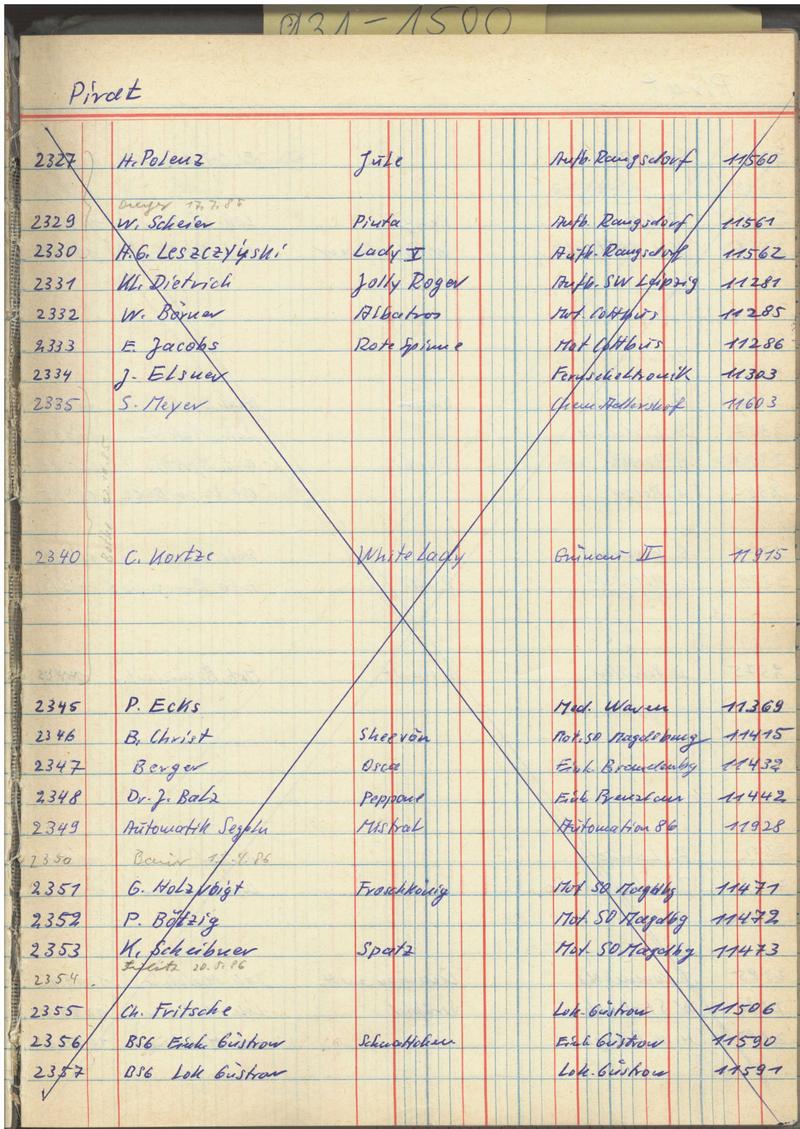 931-1500
Pirat
2327 H. Polenz Jule Aufb. Rangsdorf 11560
17.7.86
2329 W. Scheier Pinta Aufb. Rangsdorf 11561
2330 H.G. Leszczyński Lady V Aufb. Rangsdorf 11562
2331 Kl. Dietrich Jolly Roger Aufb. SW Leipzig 11281
2332 W. Börner Albatros Mot. Cottbus 11285
2333 E. Jacobs Rote Spinne Mot Cottbus 11286
2334 J. Elsner Fernsehelektronik 11303
2335 S. Meyer Chem. Adlershof 11603
2340 C. Kortze White Lady Grünau II 11915
2345 P. Ecks Med. Waren 11369
2346 B. Christ Sheevän Mot. SO Magdeburg 11415
2347 Berger Osca Einh. Brandenbg 11432
2348 Dr. J. Balz Peppone Einh Prenzlau 11442
2349 Automatik Segeln Mistral Automation 86 11928
2350 86
2351 G. Holzvoigt Froschkönig Mot SO Magdbg 11471
2352 P. Bötzig Mot. SO Magdbg 11472
2353 K. Scheibner Spatz Mot. SO Magdbg 11473
2354 20.5.86
2355 Ch. Fritsche Lok. Güstrow 11506
2356 BSG Einh. Güstrow Einh Güstrow 11590
2357 BSG Lok Güstrow Lok. Güstrow 11591